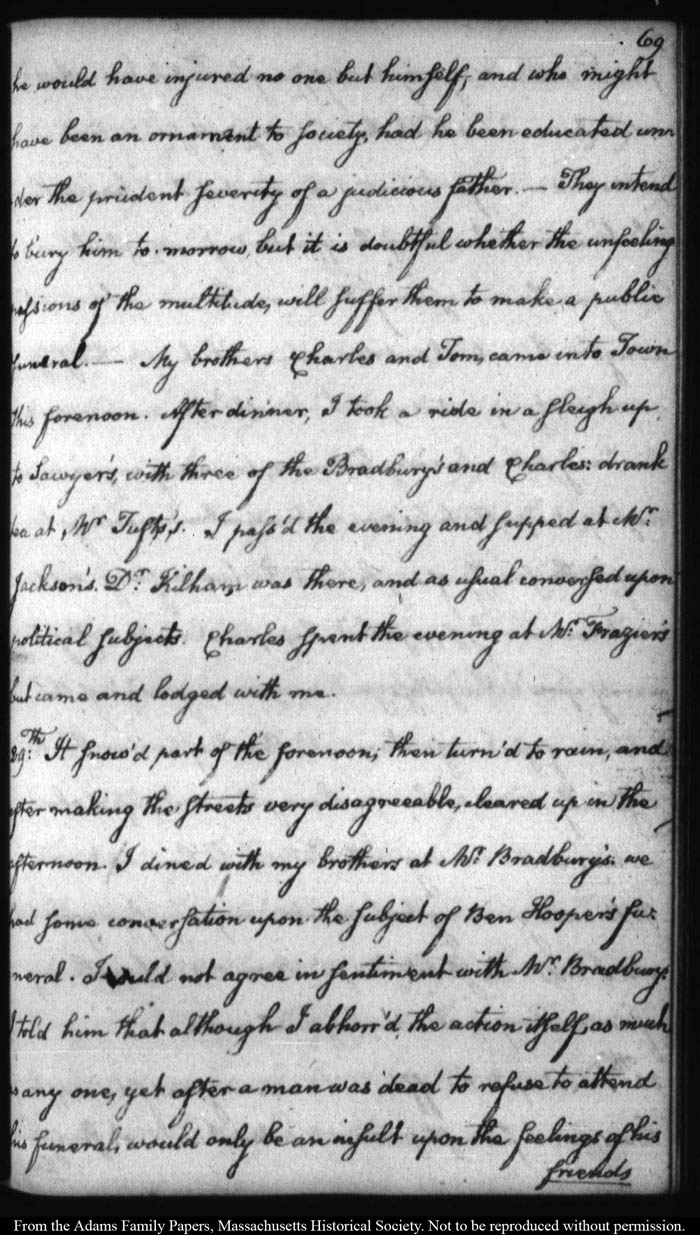 69
he would have injured no one but himself, and who might
have been an ornament to society, had he been educated un-
der the prudent severity of a judicious father. — They intend
to bury him to-morrow, but it is doubtful whether the unfeeling
passions of the multitude, will suffer them to make a public
funeral. — My brothers Charles and Tom, came into Town
this forenoon. After dinner, I took a ride in a sleigh up,
to Sawyer's, with three of the Bradbury's and Charles: drank
tea at, Mr. Tufts's. I pass'd the evening and supped at Mr.
Jackson's. Dr. Kilham was there, and as usual conversed upon
political subjects. Charles spent the evening at Mr. Frazier's
but came and lodged with me.
29:th It snow'd part of the forenoon; then turn'd to rain, and
after making the streets very disagreeable, cleared up in the
afternoon. I dined with my brothers at Mr. Bradbury's: we
had some conversation upon the subject of Ben Hooper's fu-
neral. I could not agree in sentiment with Mr. Bradbury.
I told him that although I abhorr'd, the action itself, as much
as any one, yet after a man was dead to refuse to attend
his funeral, would only be an insult upon the feelings of his
friends
From the Adams Family Papers, Massachusetts Historical Society. Not to be reproduced without permission.